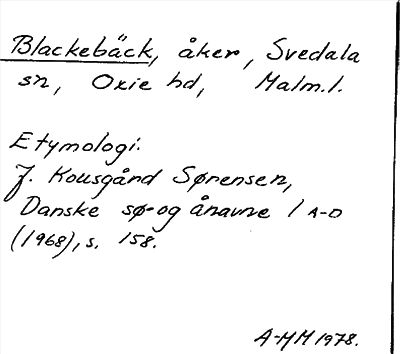 Blackebäck, åker, Svedala
sn, Oxie hd, Malm.l.
Etymologi:
J. Kousgård Sørensen,
Danske sø- og ånavne 1 A-D
(1968), s. 158.
A-MM 1978.